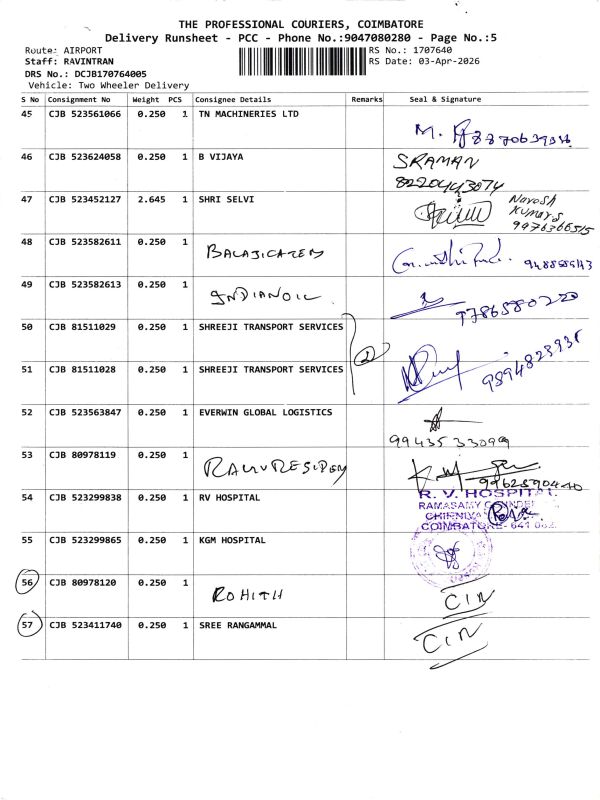 THE PROFESSIONAL COURIERS, COIMBATORE
Delivery Runsheet - PCC - Phone No.:9047080280 - Page No.:5
Route: AIRPORT
RS No.: 1707640
Staff: RAVINTRAN
RS Date: 03-Apr-2026
DRS No.: DCJB170764005
Vehicle: Two Wheeler Delivery
S No Consignment No Weight PCS Consignee Details Remarks Seal & Signature
45 CJB 523561066 0.250 1 TN MACHINERIES LTD
46 CJB 523624058 0.250 1 B VIJAYA SRAMAN
8220443074
47 CJB 523452127 2.645 1 SHRI SELVI
9976366515
48 CJB 523582611 0.250 1
49 CJB 523582613 0.250 1 INDIANOIL
50 CJB 81511029 0.250 1 SHREEJI TRANSPORT SERVICES
2
51 CJB 81511028 0.250 1 SHREEJI TRANSPORT SERVICES
52 CJB 523563847 0.250 1 EVERWIN GLOBAL LOGISTICS
53 CJB 80978119 0.250 1
54 CJB 523299838 0.250 1 RV HOSPITAL R. V. HOSPITAL
RAMASAMY
COIMBATORE- 641
55 CJB 523299865 0.250 1 KGM HOSPITAL
56 CJB 80978120 0.250 1 ROHITH
57 CJB 523411740 0.250 1 SREE RANGAMMAL